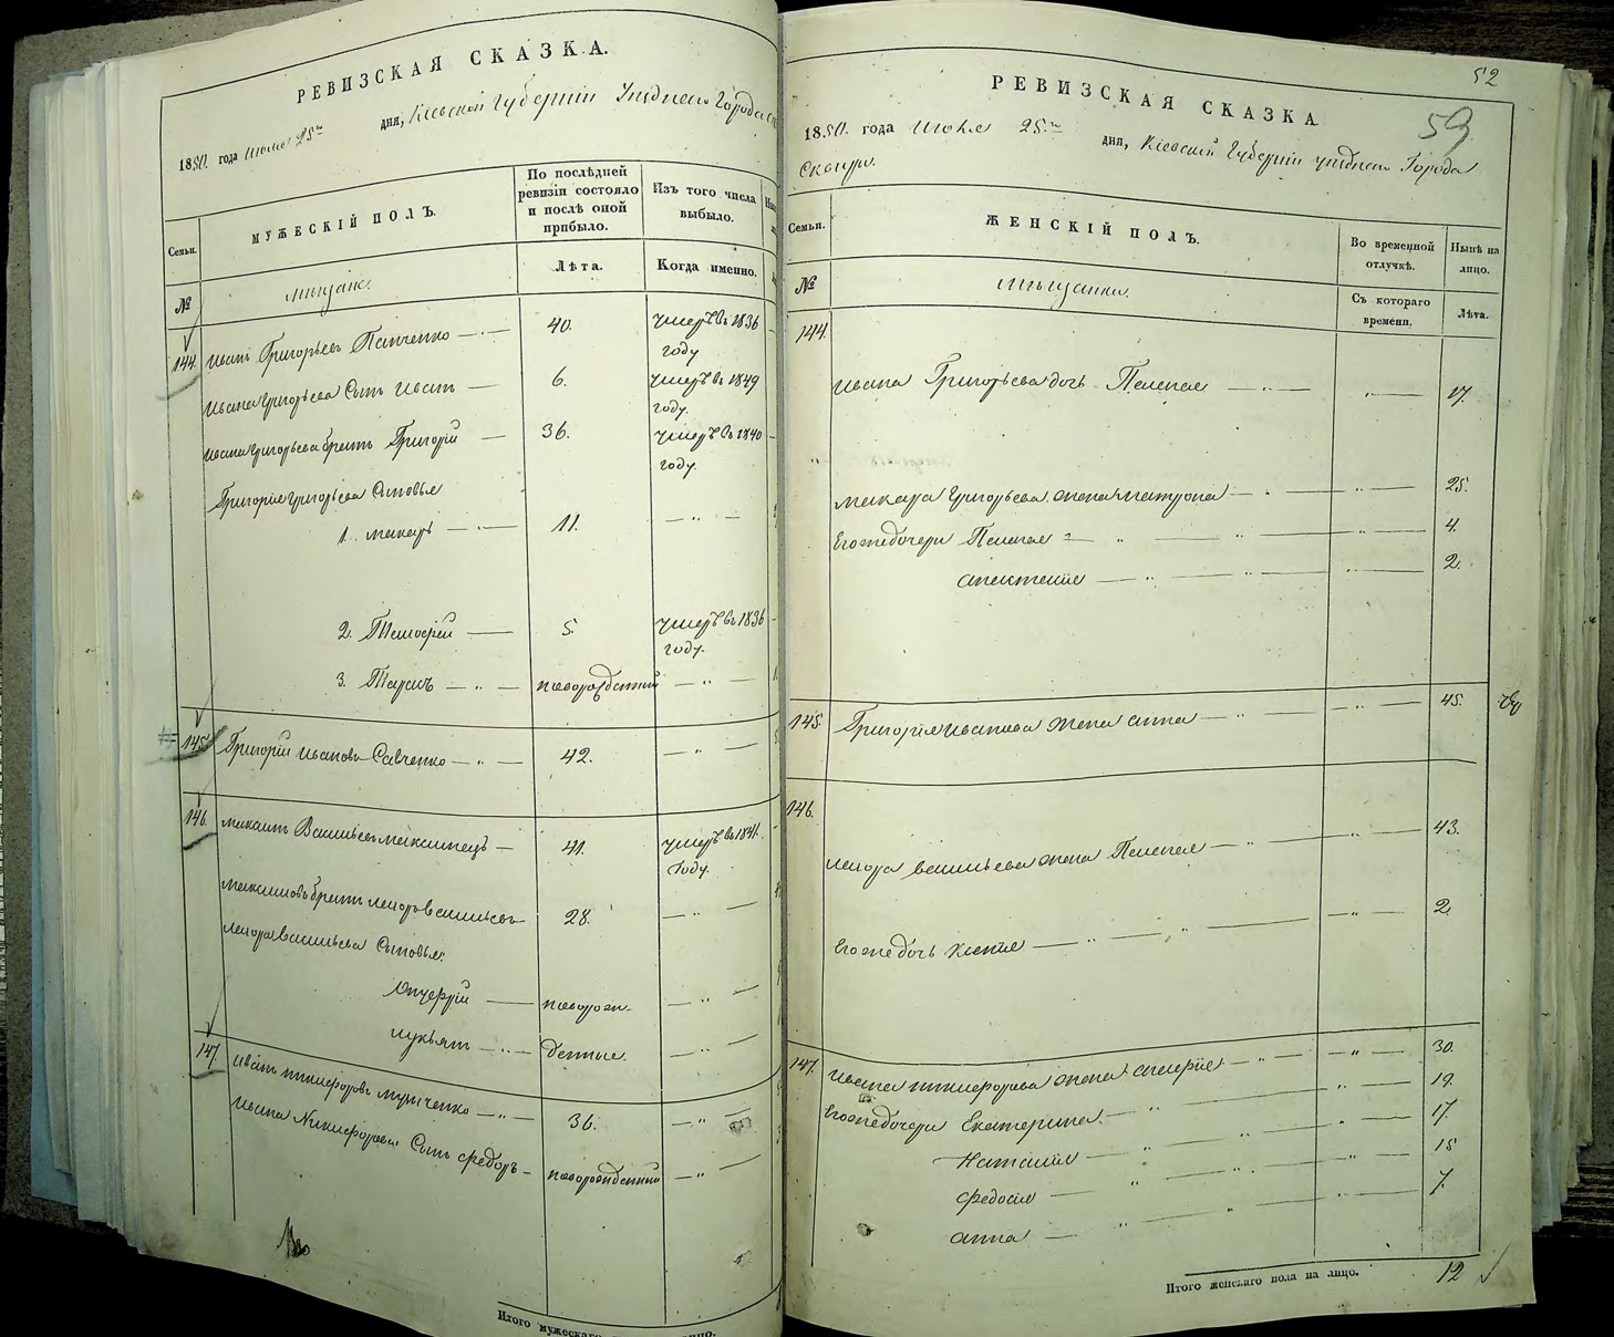 РЕВИЗСКАЯ СКАЗКА.
1850. года июля 25го дня, Кіевской Губерніи Уѣзднаго Города
Семьи.
МУЖЕСКІЙ ПОЛЪ.
По послѣдней ревизіи состояло и послѣ оной прибыло.
Изъ того числа выбыло.
№
мѣщане.
Лѣта.
Когда именно.
144. Иванъ Григорьевъ Панченко — 40. умеръ въ 1836 году
Ивана Григорьева Сынъ Иванъ — 6. умеръ въ 1849 году.
Ивана Григорьева братъ Григорій — 36. умеръ въ 1840 году.
Григорія Григорьева Сыновья
1. Макаръ — 11. — „ —
2. Тимофей — 5. умеръ въ 1836 году.
3. Тарасъ — „ — новорожденный — „ —
145. Григорій Ивановъ Савченко — „ — 42. — „ —
146. Максимъ Васильевъ Максимецъ — 41. умеръ въ 1841. году.
Максимовъ братъ Исидоръ Васильевъ 28. — „ —
Васильева Сыновья:
— новорож- — „ —
Лукьянъ — „ — денные. — „ —
147. Иванъ Никифоровъ — „ — 36. — „ —
Ивана Никифорова Сынъ Федоръ — новорожденный — „ —
Итого мужескаго
52
РЕВИЗСКАЯ СКАЗКА
59
1850. года Июля 25го дня, Кіевской Губерніи уѣзднаго Города
Сквиры.
Семьи.
ЖЕНСКІЙ ПОЛЪ.
Во временной отлучкѣ.
Нынѣ на лицо.
№
мѣщанки.
Съ котораго времени.
Лѣта.
144.
Ивана Григорьева дочь Пелагея — „ — 17.
Макара Григорьева жена Матрона — „ — 25.
Его же дочери Пелагея — „ — 4.
Анастасія — „ — 2.
145. Григорія Иванова жена Анна — „ — 45.
146.
Васильева жена Пелагея — „ — 43.
Его же дочь Ксенія — „ — 2.
147. Ивана Никифорова жена — „ — 30.
Его же дочери Екатерина. — „ — 19.
Наталія — „ — 17.
Федосія — „ — 15
Анна — „ — 7.
Итого женскаго пола на лицо. 12